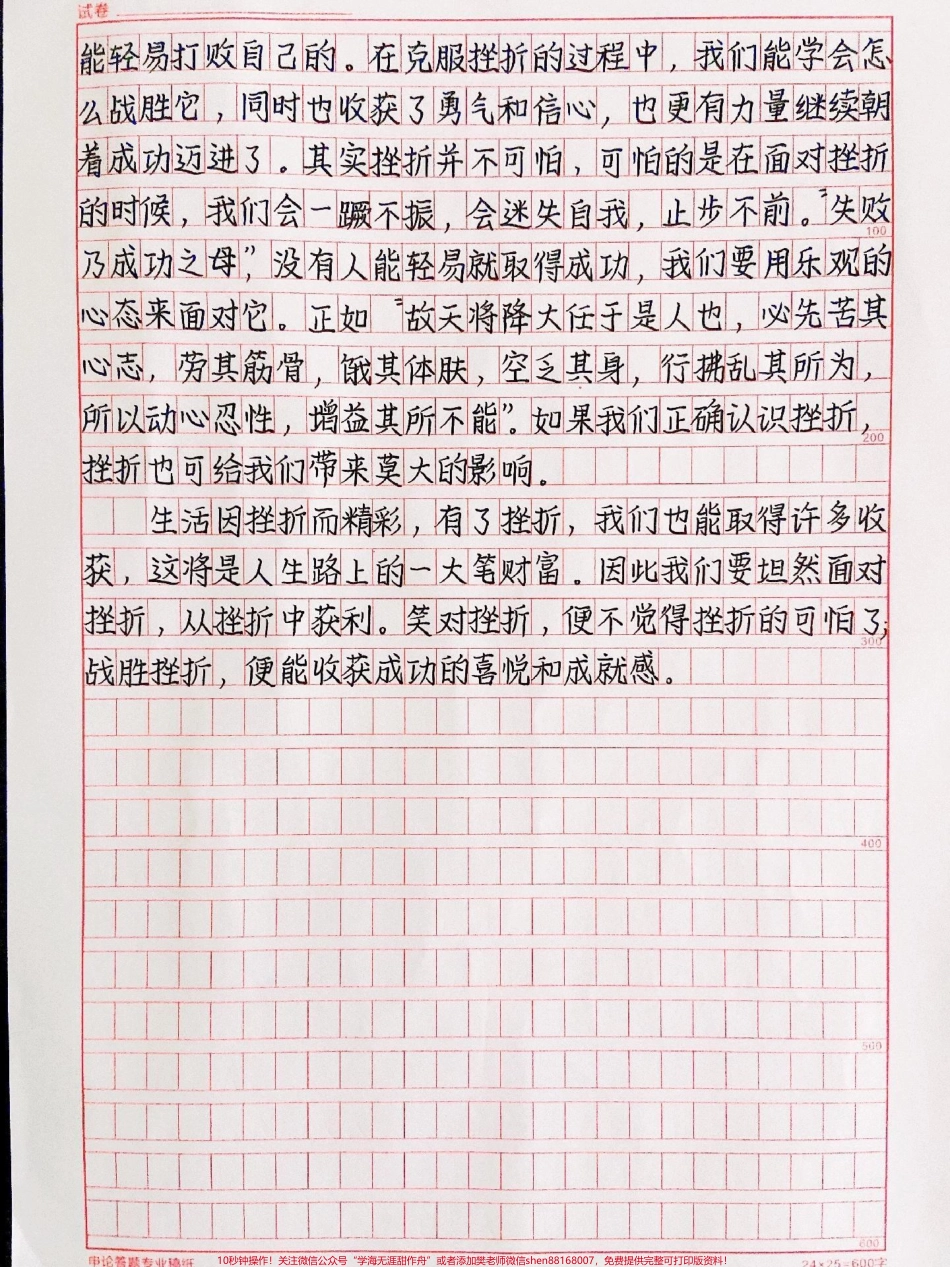 试卷
能轻易打败自己的。在克服挫折的过程中，我们能学会怎
么战胜它，同时也收获了勇气和信心，也更有力量继续朝
着成功迈进了。其实挫折并不可怕，可怕的是在面对挫折
的时候，我们会一蹶不振，会迷失自我，止步不前。“失败
100
乃成功之母”，没有人能轻易就取得成功，我们要用乐观的
心态来面对它。正如“故天将降大任于是人也，必先苦其
心志，劳其筋骨，饿其体肤，空乏其身，行拂乱其所为，
所以动心忍性，增益其所不能”。如果我们正确认识挫折，
200
挫折也可给我们带来莫大的影响。
生活因挫折而精彩，有了挫折，我们也能取得许多收
获，这将是人生路上的一大笔财富。因此我们要坦然面对
挫折，从挫折中获利。笑对挫折，便不觉得挫折的可怕了；
300
战胜挫折，便能收获成功的喜悦和成就感。
400
500
600
申论答题专业稿纸
10秒钟操作！关注微信公众号“学海无涯甜作舟”或者添加樊老师微信shen88168007，免费提供完整可打印版资料！
24×25=600字